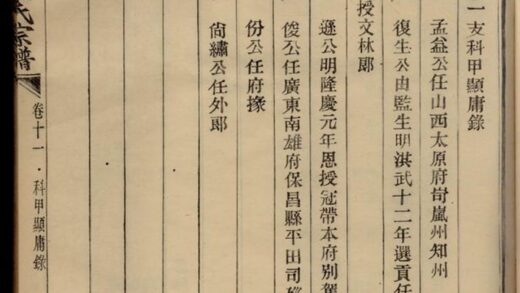 一支科甲顯庸錄
孟益公任山西太原府岢嵐州知州
復生公由監生明洪武十二年選貢任
授文林郎
遜公明隆慶元年恩授冠帶本府別駕
俊公任廣東南雄府保昌縣平田司
份公任府掾
尙繡公任外郎
氏宗譜
卷十一
科甲顯庸錄